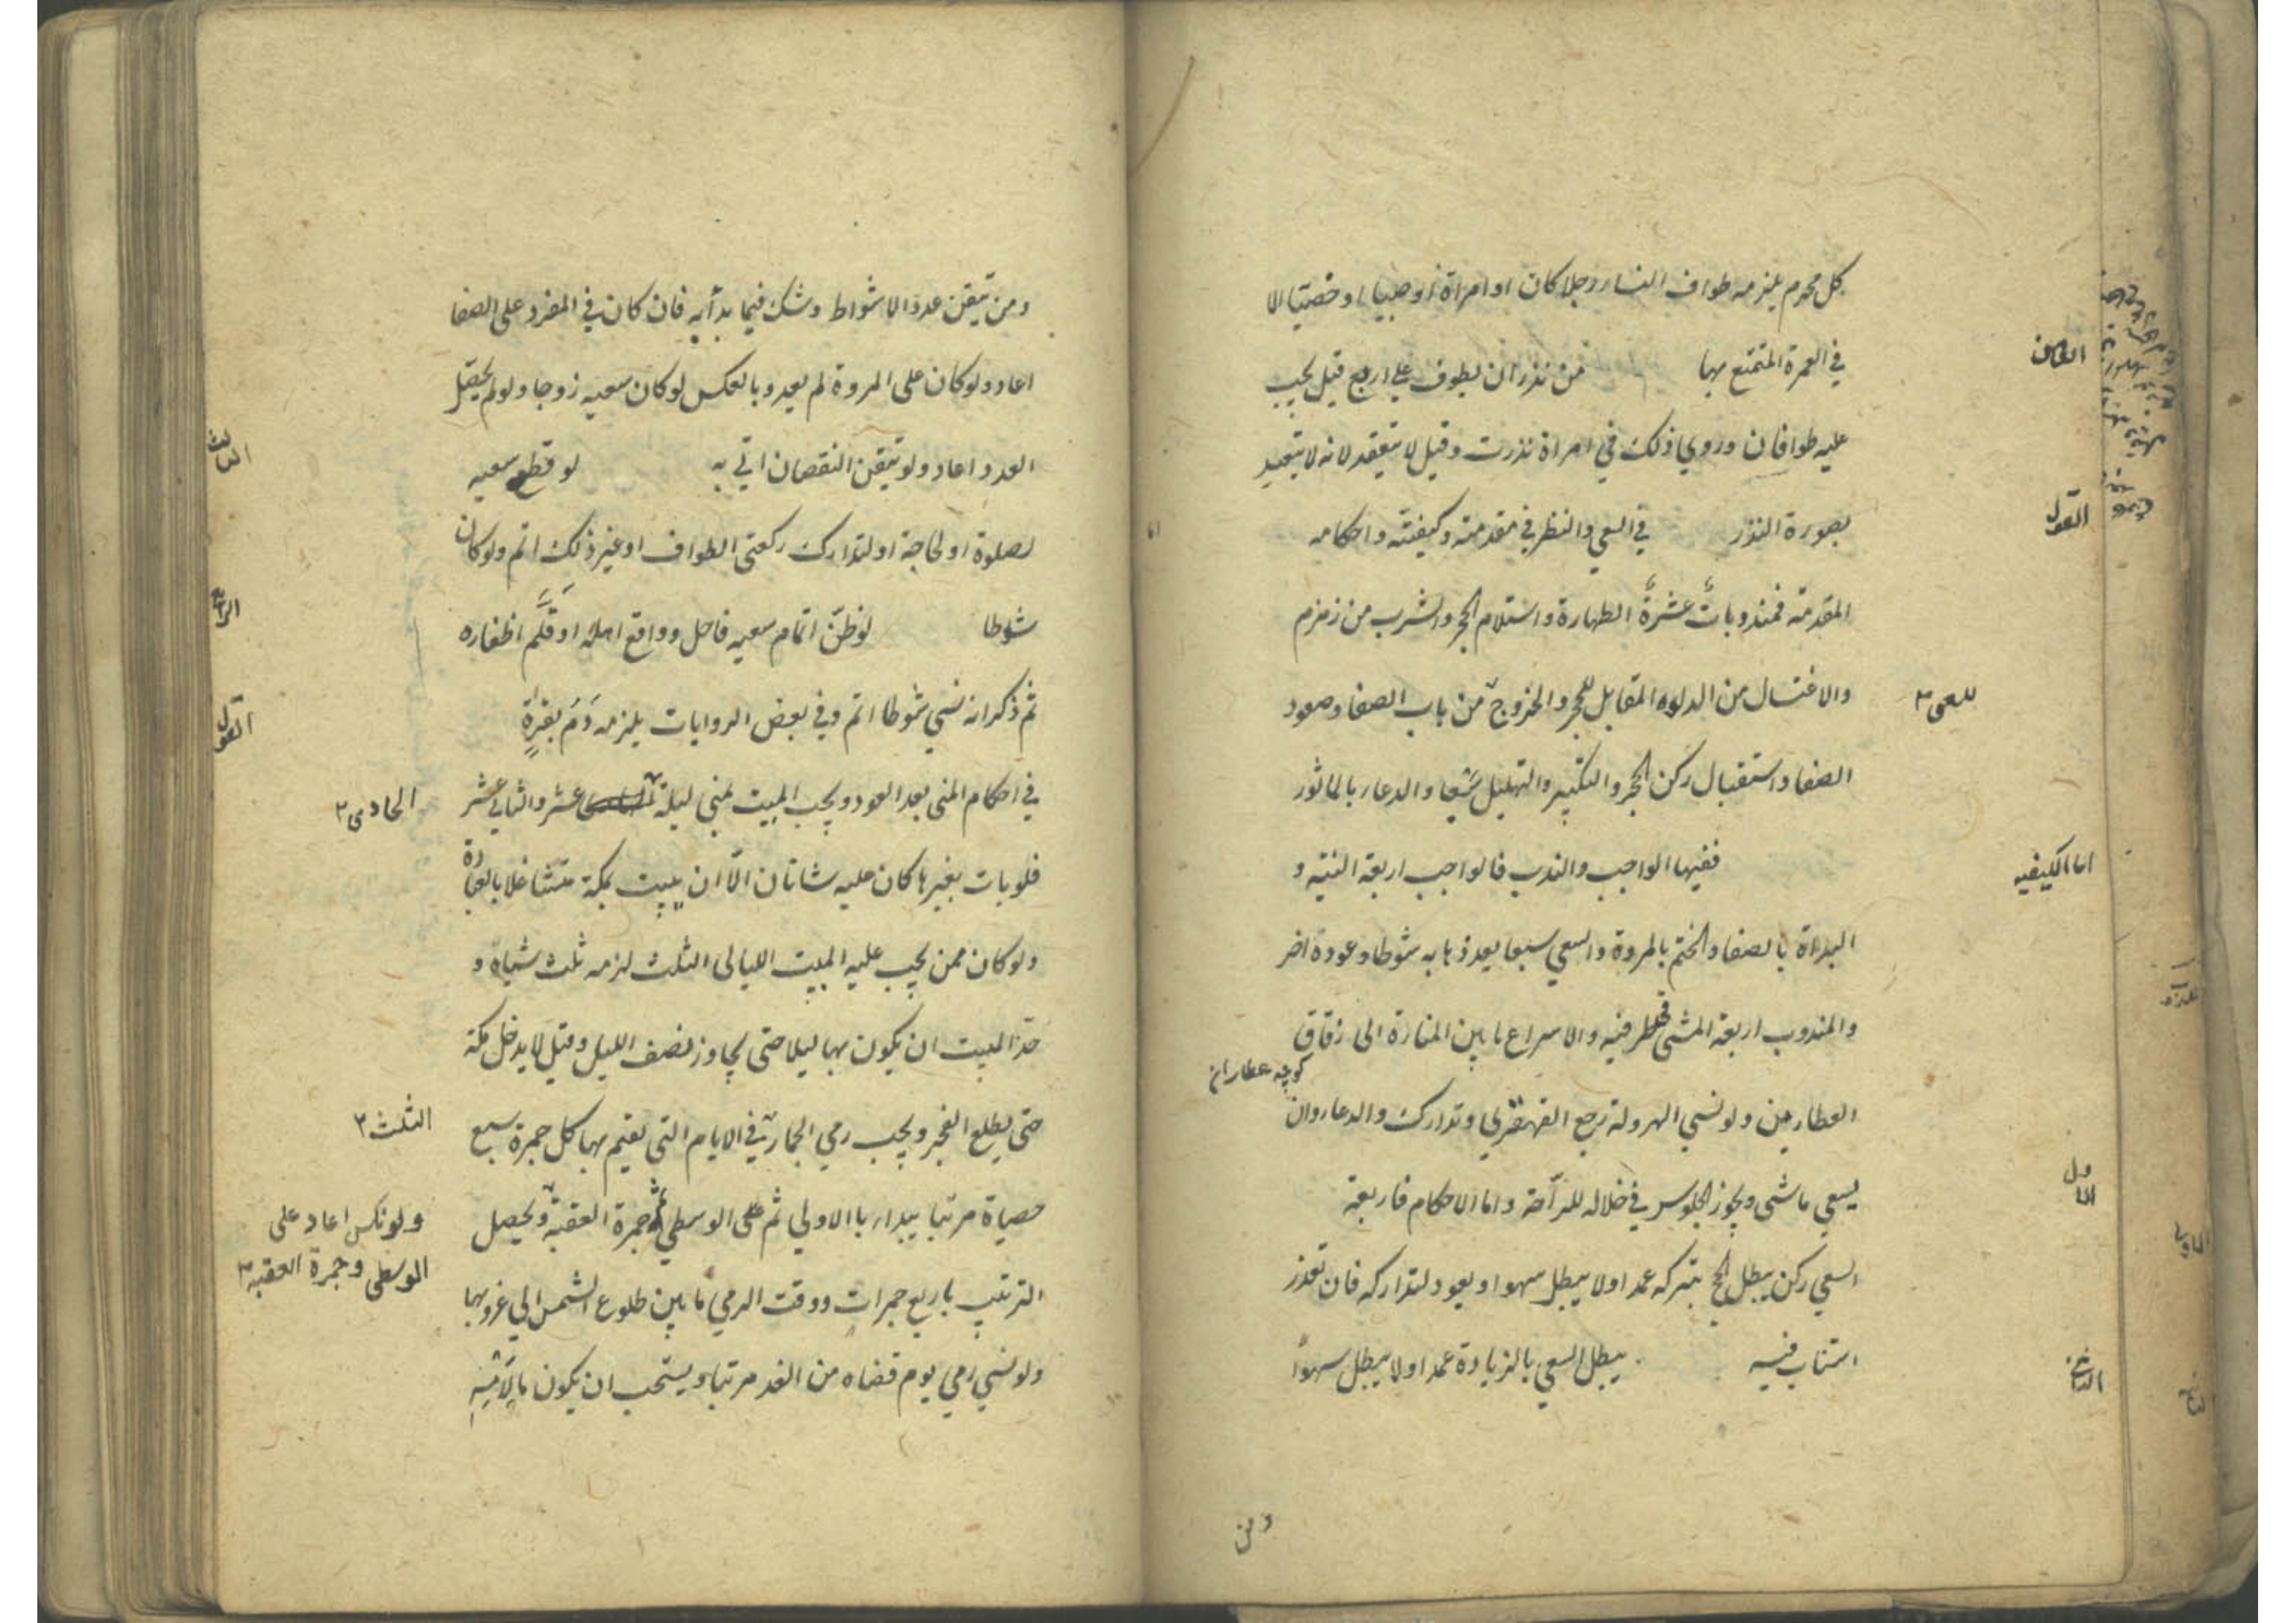 كل محرم يلزمه طواف النساء رجلا كان او امراة او صبيا او خصيا الا
في العمرة المتمتع بها من نذر ان يطوف علي اربع قيل يجب
الثامن
عليه طوافان وروي ذلك في امراة نذرت وقيل لا ينعقد لانه لا يتعبد
بصورة النذر في السعي والنظر في مقدمته وكيفيته واحكامه
القول
اما
المقدمة فمندوبات عشرة الطهارة واستلام الحجر والشرب من زمزم
والاغتسال من الدلو المقابل للحجر والخروج من باب الصفا وصعود
للسعى ٢
الصفا واستقبال ركن الحجر والتكبير والتهليل سبعا والدعاء بالماثور
ففيها الواجب والندب فالواجب اربعة النية و
اما الكيفيه
البداة بالصفا والختم بالمروة والسعي سبعا يعد ذهابه شوطا وعوده اخر
والمندوب اربعة المشي طرفيه والاسراع ما بين المنارة الى زقاق
كوچه عطاران
العطارين ولو نسي الهرولة رجع القهقرى وتدارك والدعاء وان
يسعي ماشى ويجوز الجلوس في خلاله للراحة واما الاحكام فاربعة
الاول
السعي ركن يبطل الحج بتركه عمدا ولا يبطل سهوا ويعود لتداركه فان تعذر
استناب فيه يبطل السعي بالزيادة عمدا ولا يبطل سهوا
الثاني
ومن
ومن تيقن عدد الاشواط وشك فيما بدأ به فان كان في المفرد على الصفا
اعاد ولو كان على المروة لم يعد وبالعكس لو كان سعيه زوجا ولو لم يحصل
العدد اعاد ولو تيقن النقصان اتي به لو قطع سعيه
الثالث
لصلوة او لحاجة او لتدارك ركعتى الطواف او غير ذلك اتم ولو كان
شوطا لو ظن اتمام سعيه فاحل وواقع اهله او قلم اظفاره
الرابع
ثم ذكر انه نسي شوطا اتم وفي بعض الروايات يلزمه دم بقرة
القول
في احكام المنى بعد العود ويجب المبيت بمنى ليلة عشر والثاني عشر
الحادى ٢
فلو بات بغيرها كان عليه شاتان الا ان يبيت بمكة متشاغلا بالعبادة
ولو كان ممن يجب عليه المبيت الليالى الثلث لزمه ثلث شياه و
حد المبيت ان يكون بها ليلا حتى يجاوز نصف الليل وقيل لا يدخل مكة
حتى يطلع الفجر ويجب رمي الجمار في الايام التي يقيم بها كل جمرة سبع
الثلث ٢
حصياة مرتبا يبداء بالاولي ثم على الوسطي ثم جمرة العقبة ويحصل
ولو نكس اعاد على
الوسطى وجمرة العقبه ٢
الترتيب باربع جمرات ووقت الرمي ما بين طلوع الشمس الي غروبها
ولو نسي رمي يوم قضاه من الغد مرتبا ويستحب ان يكون